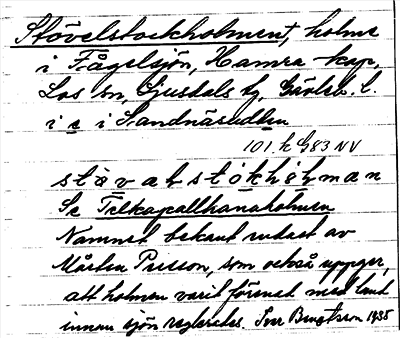 Stövelstockholmen, holme
i Fågelsjön, Hamra kap.
Los sn, Ljusdals tg, Gävleb. l.
i s i Sandnäsudden
101. h G83 NV
Se
Namnet bekant endast av
Mårten Persson, som också uppger,
att holmen varit förenat med land
innan sjön reglerades. Iver Bengtsson 1935